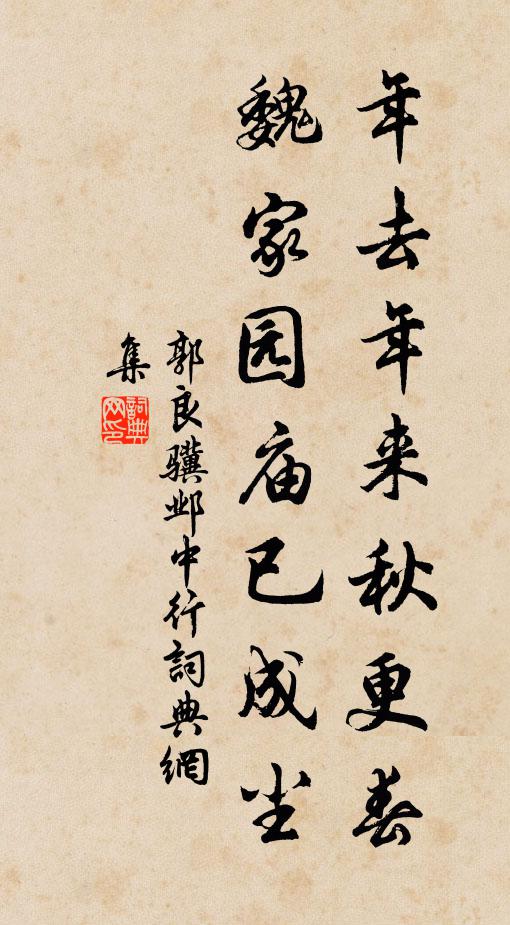 年去年来秋更春
魏家园庙已成尘
郭良骥邺中行詞典網
集
詞典网印